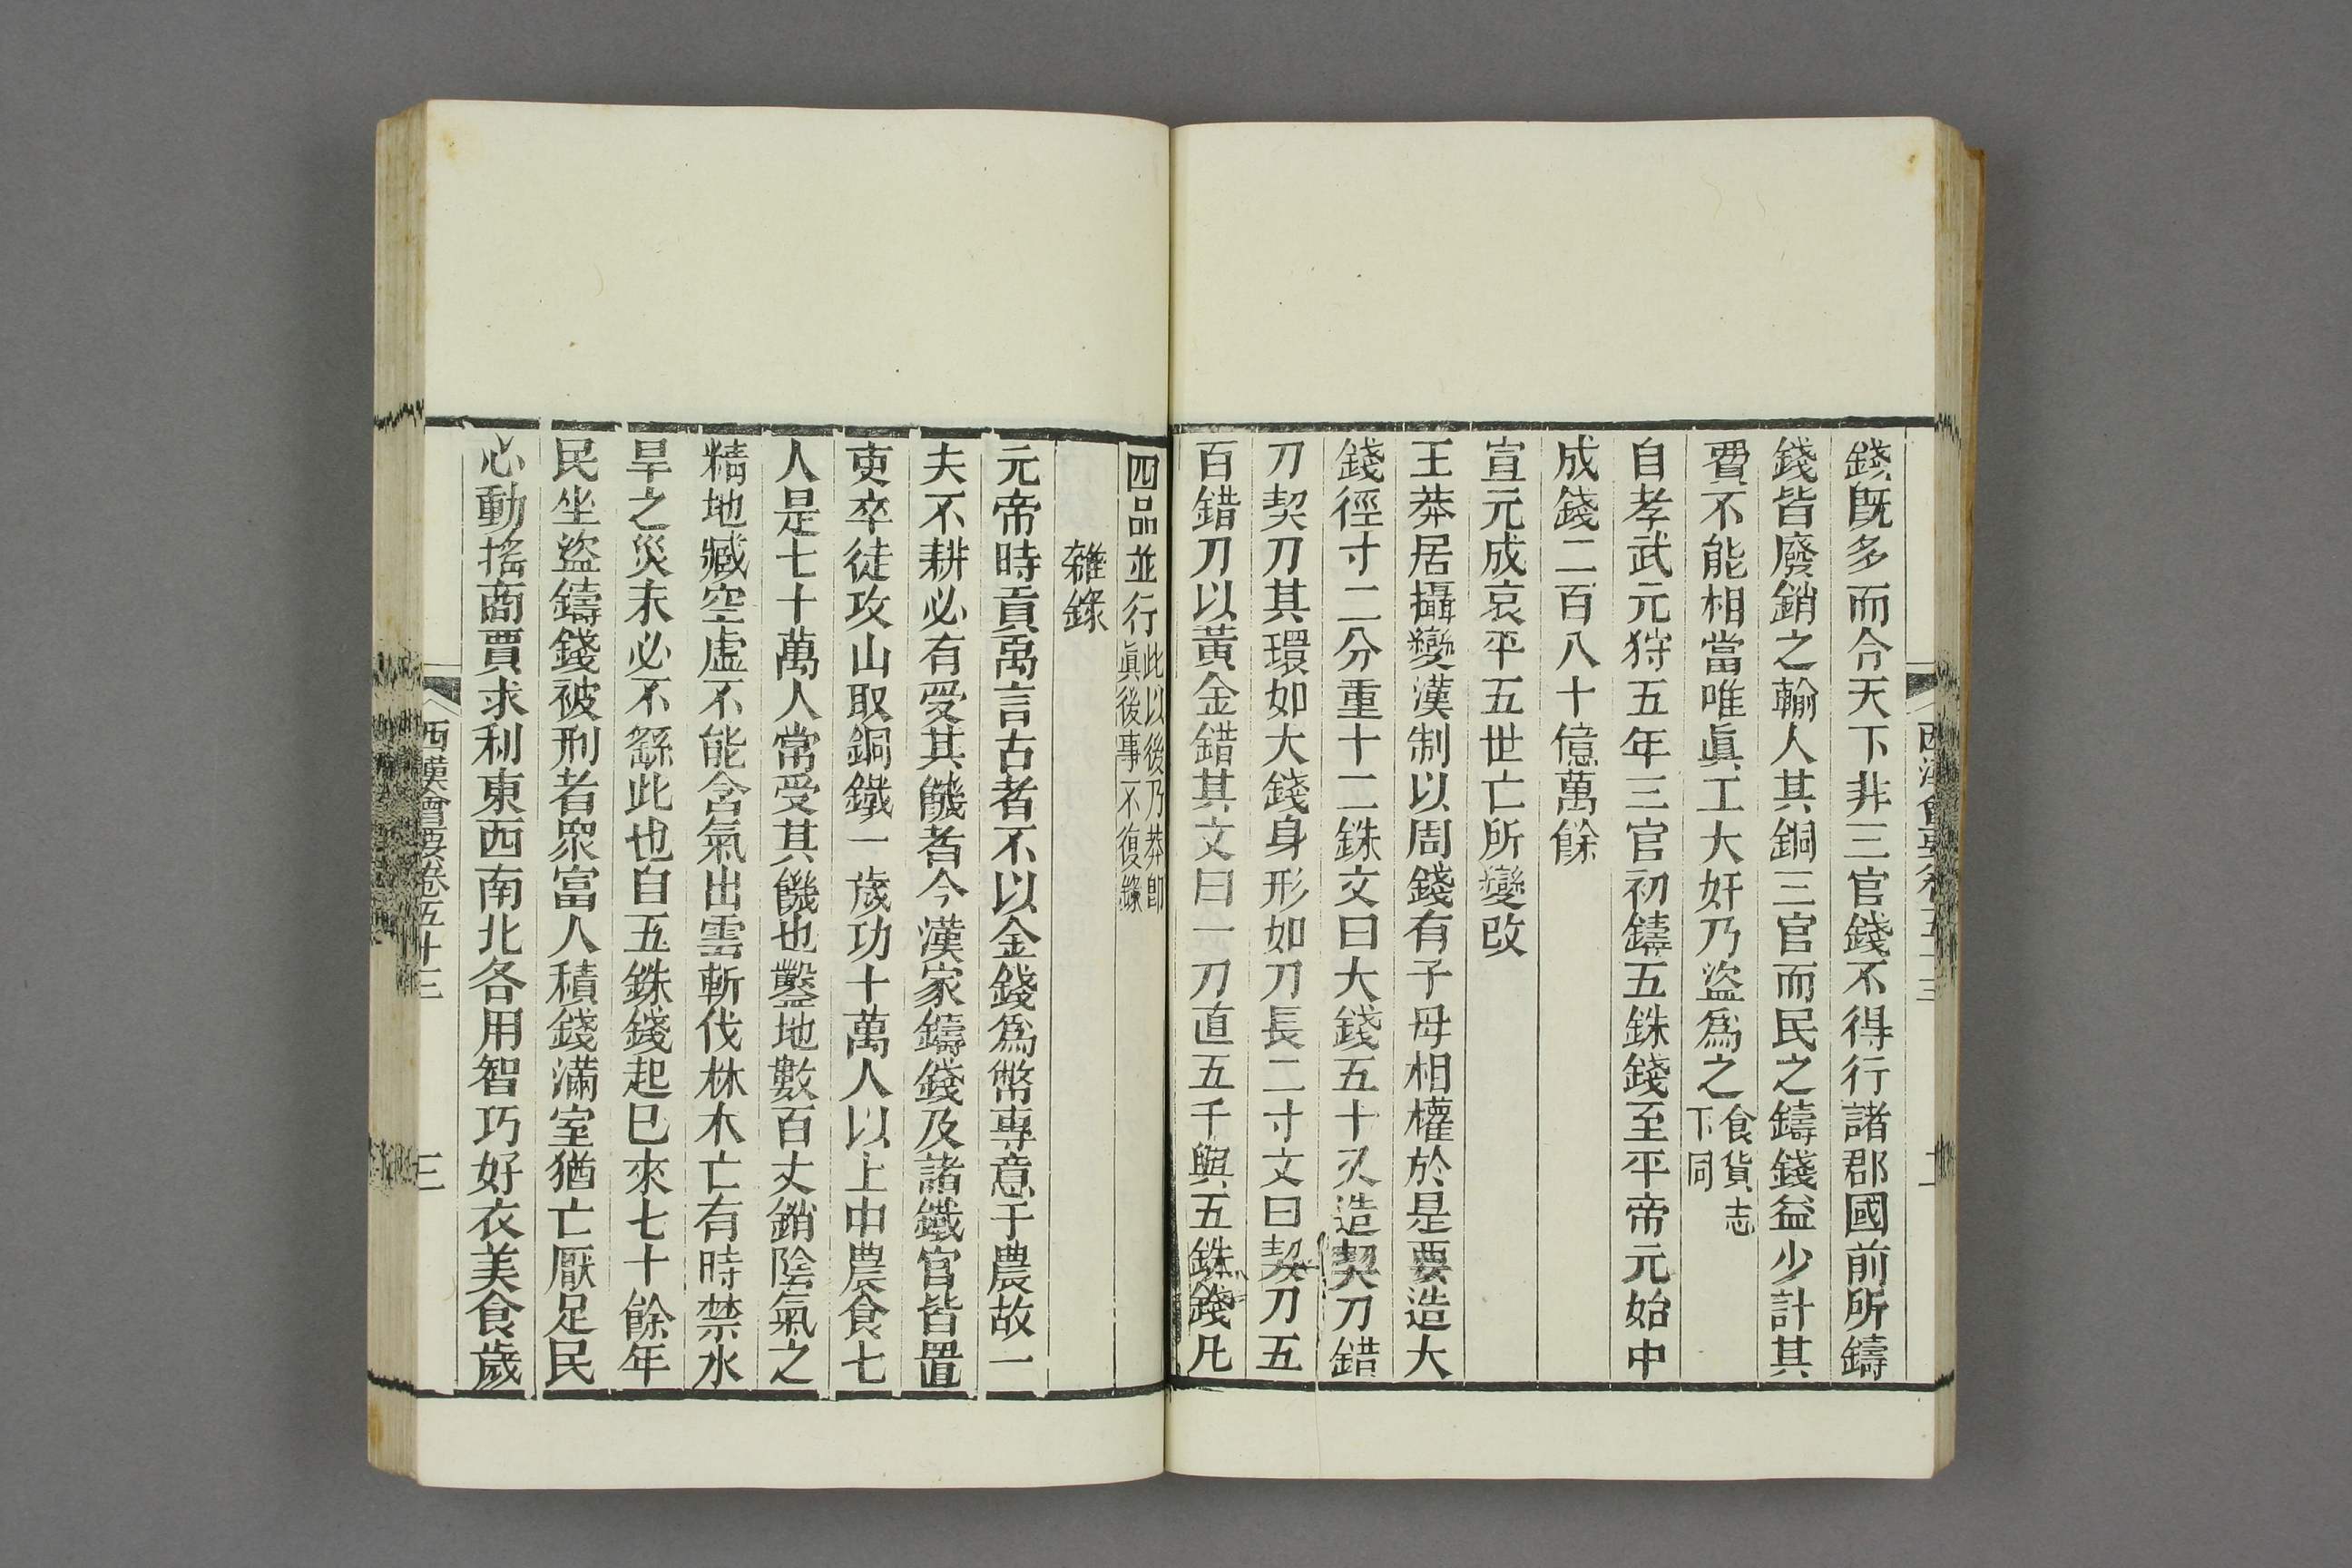 錢旣多而令天下非三官錢不得行諸郡國前所鑄
錢皆廢銷之輸入其銅三官而民之鑄錢益少計其
費不能相當唯眞工大奸乃盜爲之食貨志下同
自孝武元狩五年三官初鑄五銖錢至平帝元始中
成錢二百八十億萬餘
宣元成哀平五世亡所變改
王莽居攝變漢制以周錢有子母相權於是要造大
錢徑寸二分重十二銖文曰大錢五十又造契刀錯
刀契刀其環如大錢身形如刀長二寸文曰契刀五
百錯刀以黃金錯其文曰一刀直五千與五銖錢凡
四品並行此以後乃莽卽眞後事不復錄
雜錄
元帝時貢禹言古者不以金錢爲幣專意于農故一
夫不耕必有受其饑者今漢家鑄錢及諸鐵官皆置
吏卒徒攻山取銅鐵一歲功十萬人以上中農食七
人是七十萬人常受其饑也鑿地數百丈銷陰氣之
精地臧空虛不能含氣出雲斬伐林木亡有時禁水
旱之災未必不繇此也自五銖錢起巳來七十餘年
民坐盜鑄錢被刑者眾富人積錢滿室猶亡厭足民
心動搖商賈求利東西南北各用智巧好衣美食歲
西漢會要卷五十三
三